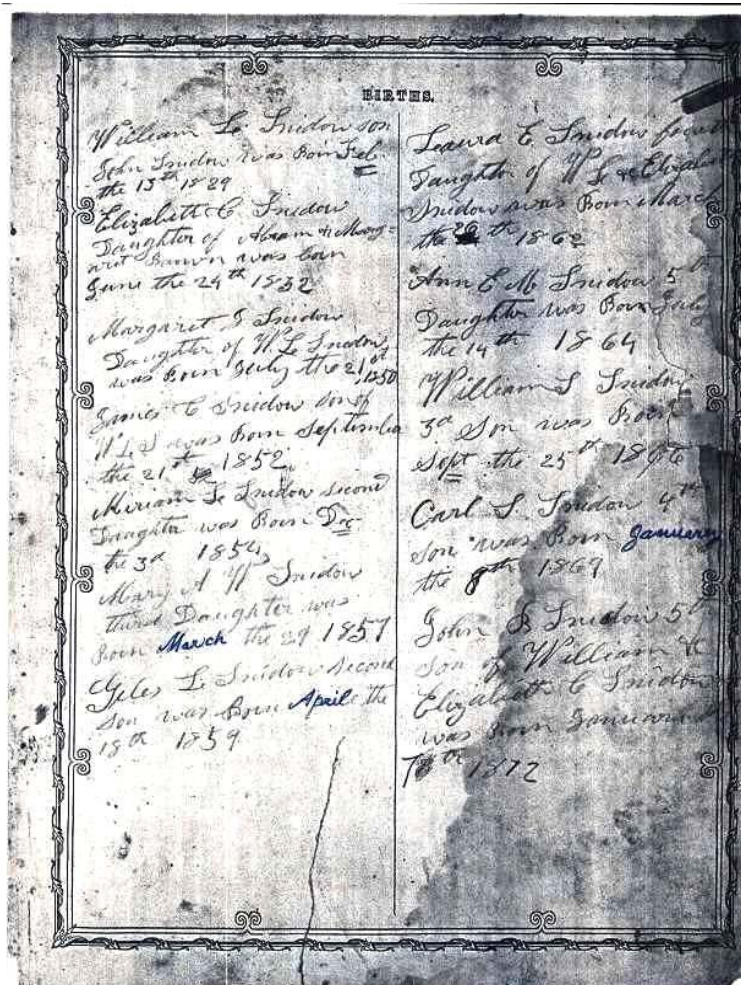 BIRTHS.
William L. Snidow son
John Snidow was Born Feb
the 15th 1829
Elizabeth C. Snidow
Daughter of Abram & Marg=
aret Brown was born
June the 24th 1832
Margaret J Snidow
Daughter of W L Snidow
was Born July the 21st 1850
James C Snidow son of
W L S was Born September
the 21st 1852
Miriam L Snidow second
Daughter was Born Dec
the 3d 1854
Mary A W Snidow
third Daughter was
Born March the 29 1857
Giles L Snidow second
son was Born April the
18th 1859
Laura E Snidow
Daughter of W L & Elizabeth
Snidow was Born March
the 26th 1862
Ann E M Snidow 5th
Daughter was Born July
the 14th 1864
William S Snidow
3d Son was Born
Sept the 25th 1866
Carl S. Snidow 4th
Son was Born January
the 8th 1869
John B Snidow 5th
son of William &
Elizabeth C Snidow
was Born January
18th 1872